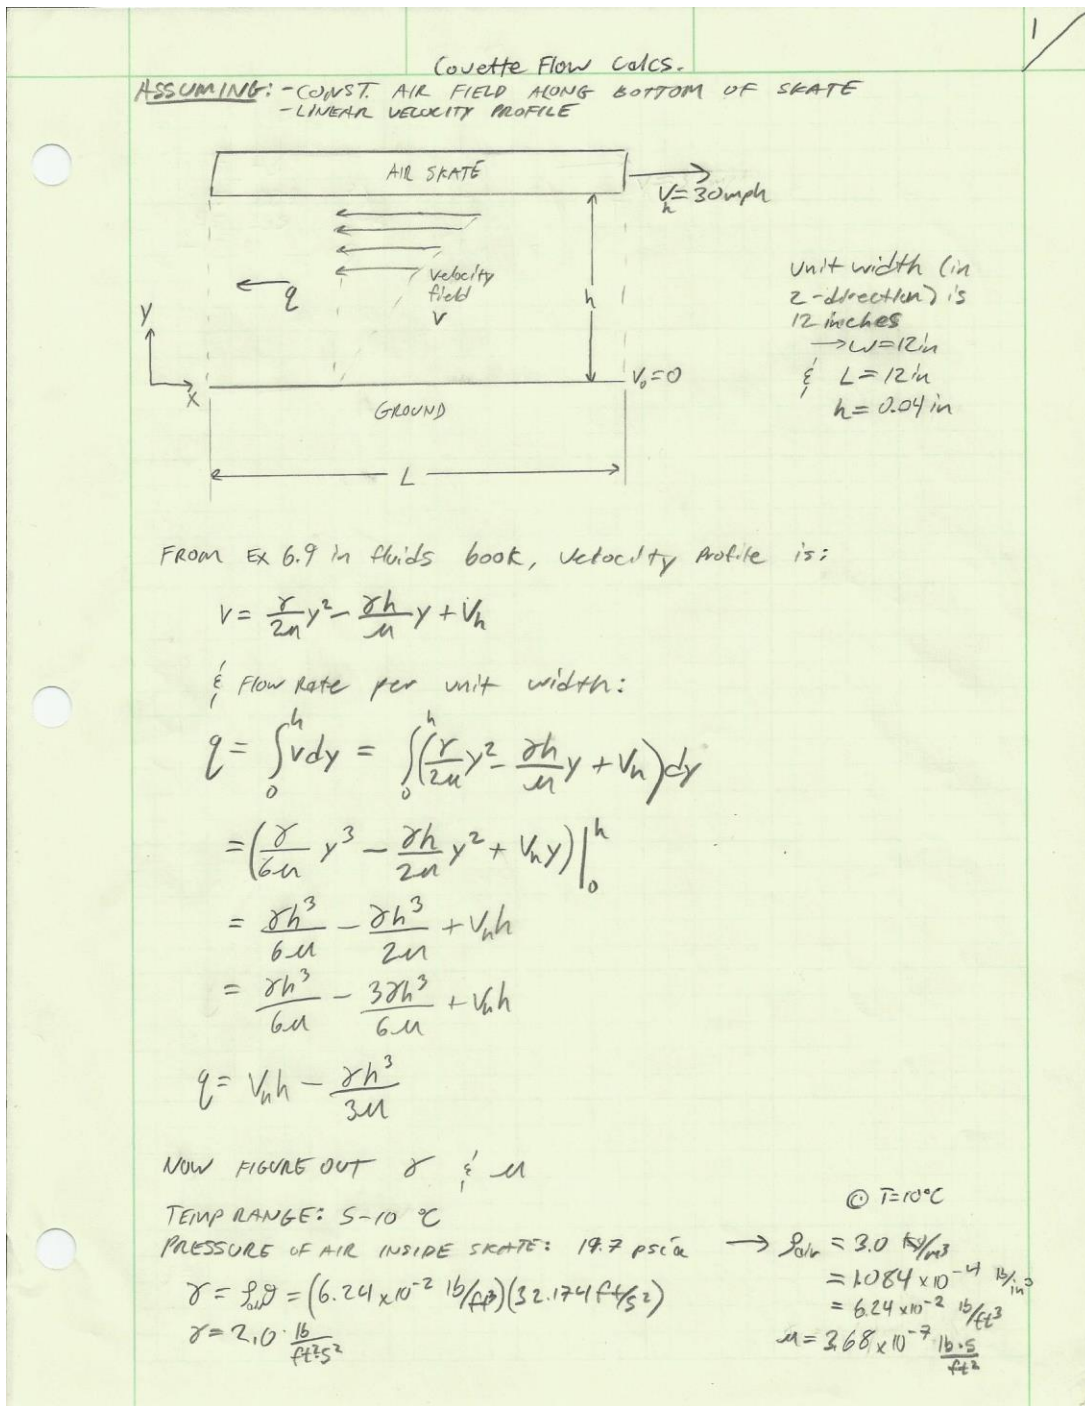 1
Couette Flow Calcs.
ASSUMING: - CONST. AIR FIELD ALONG BOTTOM OF SKATE
- LINEAR VELOCITY PROFILE
AIR SKATE
V_h = 30mph
velocity
field
v
q
h
y
x
V_0 = 0
GROUND
L
unit width (in
z-direction) is
12 inches
→ w = 12in
& L = 12in
h = 0.04in
FROM Ex 6.9 in fluids book, velocity Profile is:
v = γ/2μ y² - γh/μ y + V_h
& Flow Rate per unit width:
q = ∫₀ʰ vdy = ∫₀ʰ (γ/2μ y² - γh/μ y + V_h)dy
= (γ/6μ y³ - γh/2μ y² + V_h y)|₀ʰ
= γh³/6μ - γh³/2μ + V_h h
= γh³/6μ - 3γh³/6μ + V_h h
q = V_h h - γh³/3μ
NOW FIGURE OUT γ & μ
@ T=10°C
TEMP RANGE: 5-10 °C
PRESSURE OF AIR INSIDE SKATE: 19.7 psia → ρ_air = 3.0 kg/m³
= 1.084 x 10⁻⁴ lb/in³
= 6.24 x 10⁻² lb/ft³
μ = 3.68 x 10⁻⁷ lb·s/ft²
γ = ρ_air g = (6.24 x 10⁻² lb/ft³)(32.174 ft/s²)
γ = 2.0 lb/ft²·s²